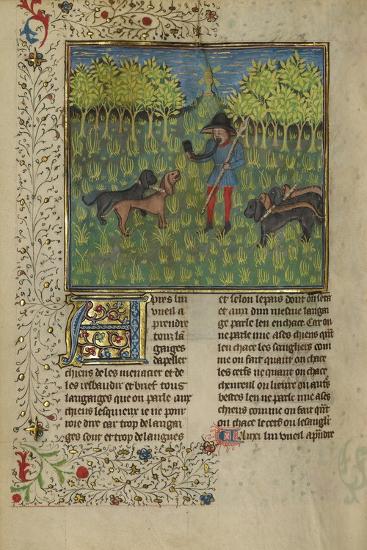 Apres luy
vueil a
prendre
tous la
gaiges
dapeller
chiens de les menacier et de
les resbaudir et brief tous
langaiges que on parle aux
chiens lesquieux ie ne pour
roie dire car trop de langai
ges sont et trop de langues
et selon le pais dont on seta
et aux dun mesme langai
ge parle len en chace Car on
ne parle mie a ses chiens quant
len chace les sengliers com
me on fait quant on chace
les cerfs ne quant on chace
cheureul ou lieure ou autres
bestes len ne parle mie a ses
chiens comme on fait quant
on chace le cerf ou le sanglier
luy vueil apndre